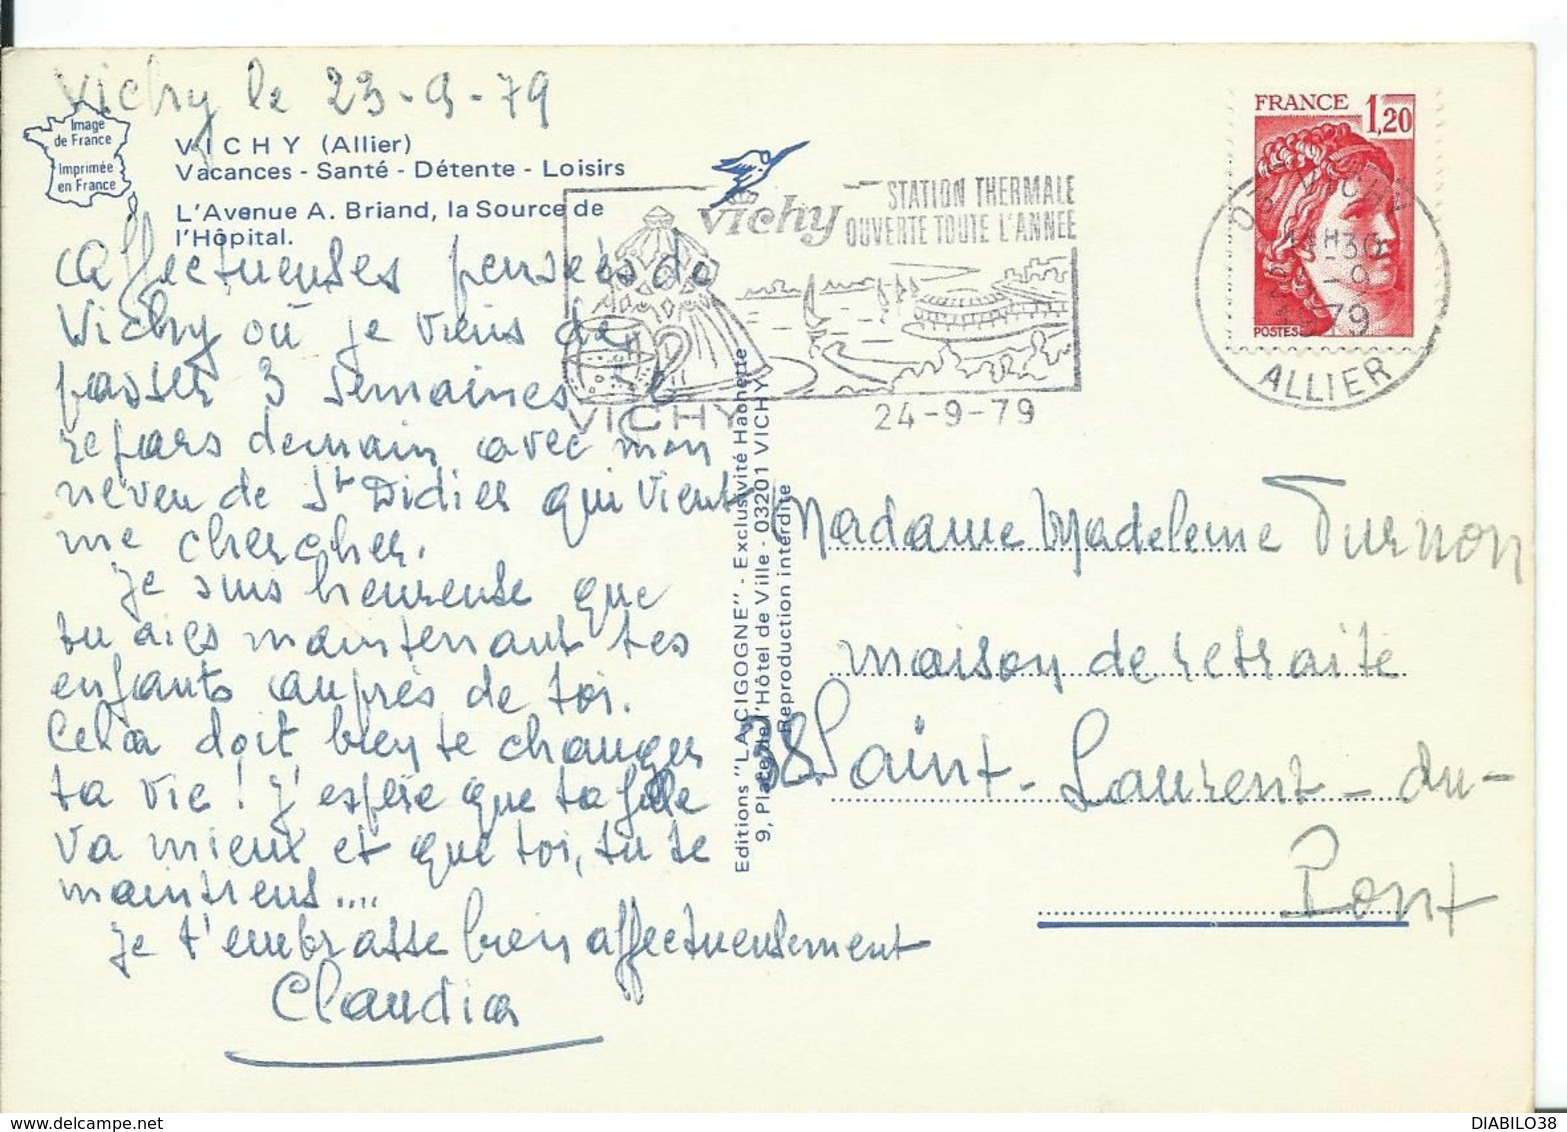 Vichy le 23-9-79
Image
de France
Imprimée
en France
VICHY (Allier)
Vacances - Santé - Détente - Loisirs
L'Avenue A. Briand, la Source de
l'Hôpital.
Affectueuses pensées de
Vichy où je viens de
passer 3 semaines
repars demain avec mon
neveu de St Didier qui vient
me chercher.
Je suis heureuse que
tu aies maintenant tes
enfants auprès de toi.
Cela doit bien te changer
ta vie ! J'espère que ta fille
va mieux et que toi, tu te
maintiens ....
Je t'embrasse bien affectueusement
Claudia
Editions "LA CIGOGNE" - Exclusivité Hachette
9, Place de l'Hôtel de Ville - 03201 VICHY
Reproduction interdite
vichy
STATION THERMALE
OUVERTE TOUTE L'ANNEE
VICHY
24-9-79
FRANCE 1,20
POSTES
VICHY
-9
79
ALLIER
Madame Madeleine Turnon
maison de retraite
38 Saint-Laurent-du-
Pont
DIABILO38